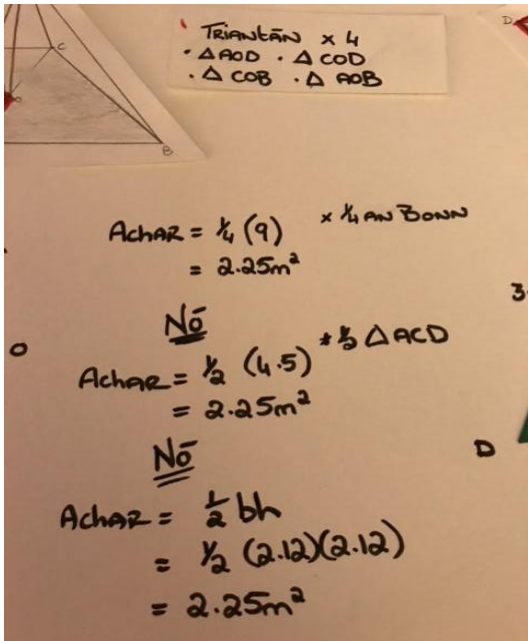 TRIANtÁN x 4
· △ AOD · △ COD
· △ COB · △ AOB
D
C
B
AChAR = 1/4 (9) x 1/4 AN BONN
= 2.25m²
NÓ
3.
O
AChAR = 1/2 (4.5) * 1/2 △ ACD
= 2.25m²
NÓ
D
AChAR = 1/2 bh
= 1/2 (2.12)(2.12)
= 2.25m²